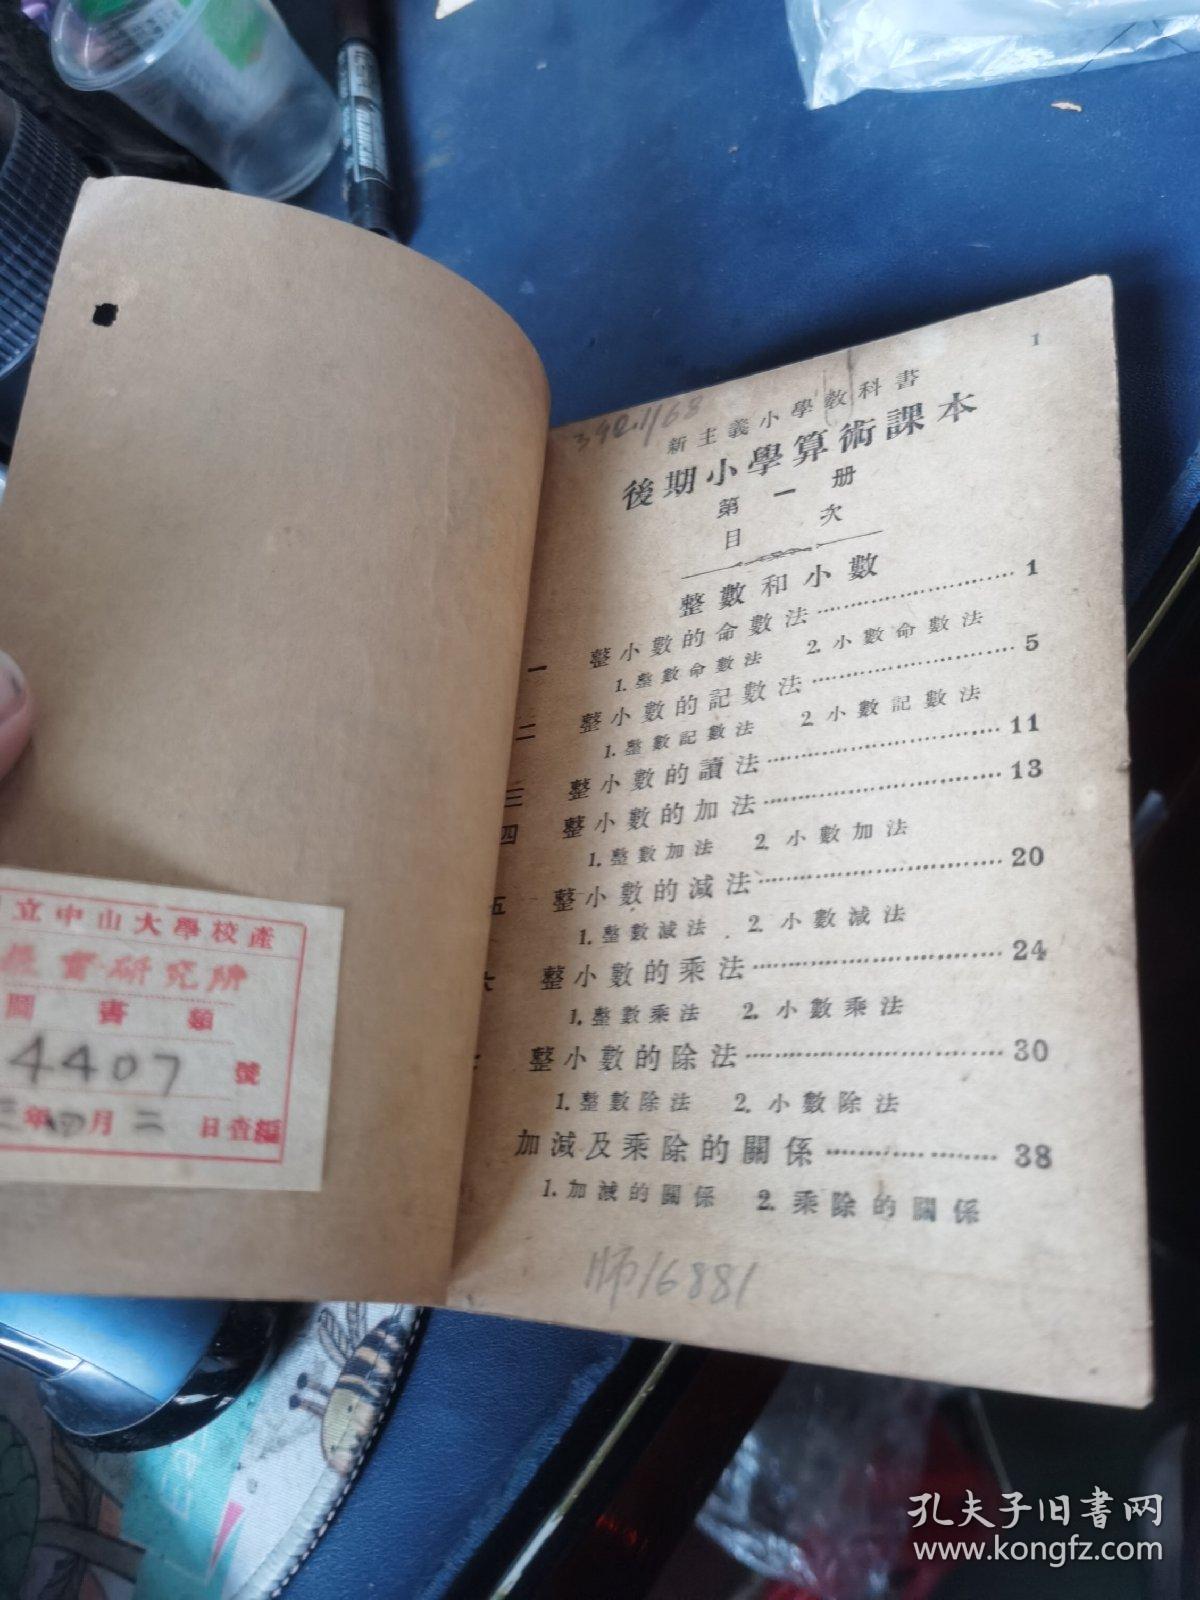 立中山大學校產
研究所
圖書類
4407 號
年四月二日查編
1
392.1/68
新主義小學教科書
後期小學算術課本
第一册
目次
整數和小數
一 整小數的命數法 1
1. 整數命數法 2. 小數命數法
二 整小數的記數法 5
1. 整數記數法 2. 小數記數法
三 整小數的讀法 11
四 整小數的加法 13
1. 整數加法 2. 小數加法
五 整小數的減法 20
1. 整數減法 2. 小數減法
六 整小數的乘法 24
1. 整數乘法 2. 小數乘法
整小數的除法 30
1. 整數除法 2. 小數除法
加減及乘除的關係 38
1. 加減的關係 2. 乘除的關係
师16881
孔夫子旧书网
www.kongfz.com